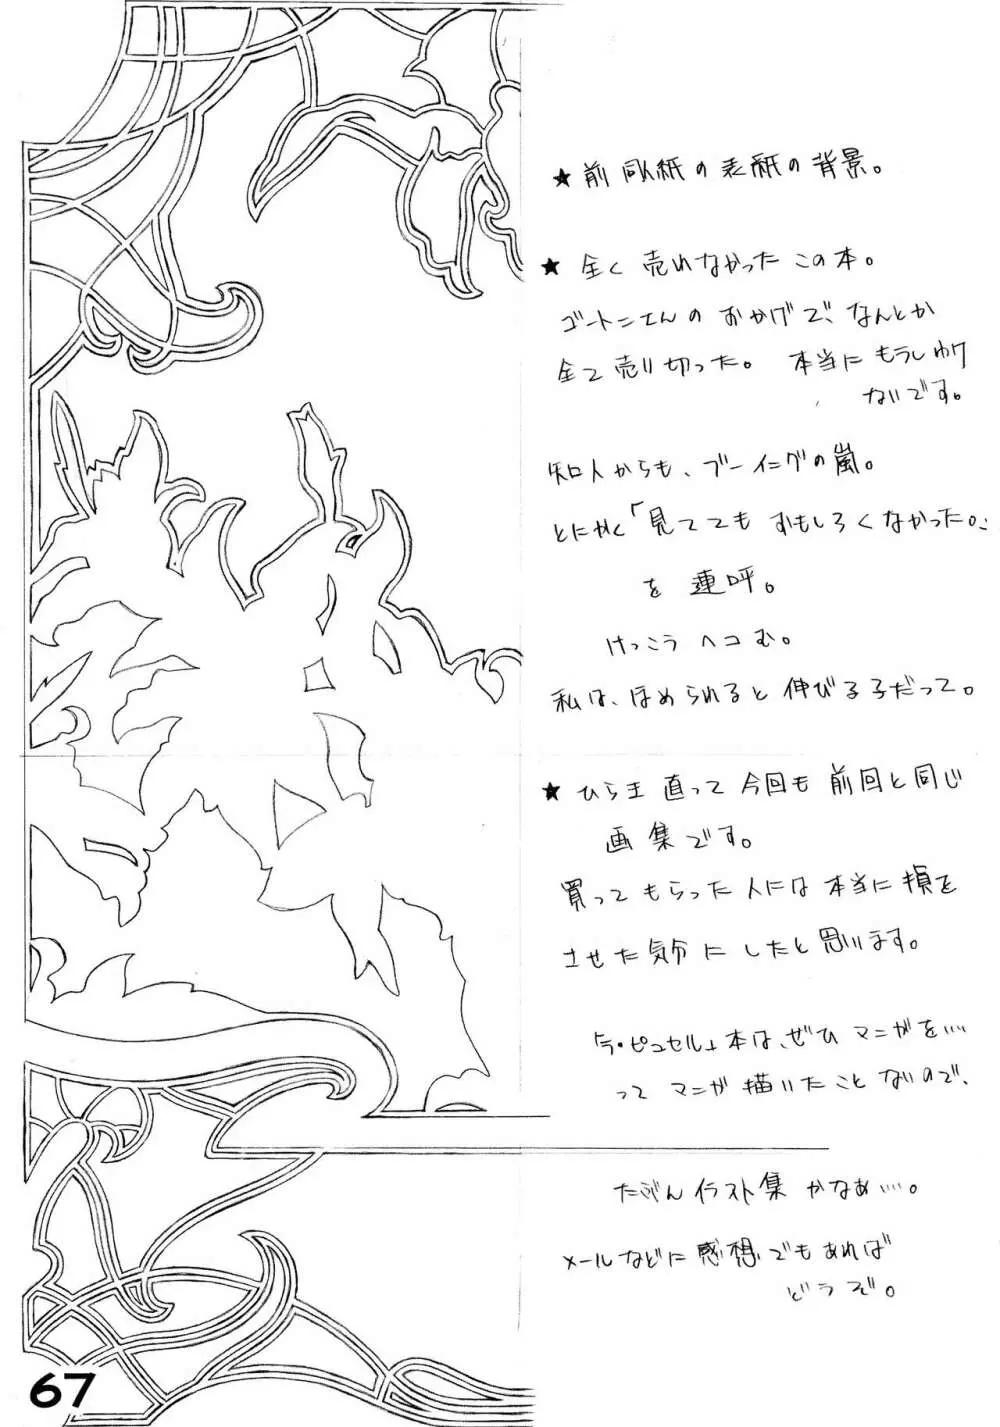 ★ 前回紙の表紙の背景。
★ 全く売れなかったこの本。
ゴートニエんのおかげで、なんとか
全て売り切った。 本当にもうしわけ
ないです。
知人からも、ブーイングの嵐。
とにかく「見ててもおもしろくなかった。」
を連呼。
けっこうヘコむ。
私は、ほめられると伸びる子だって。
★ ひらき直って今回も前回と同じ
画集です。
買ってもらった人には本当に損を
させた気分にしたと思います。
「ラ・ピュセル」本は、ぜひマンガを‥‥
ってマンガ描いたことないので、
たぶんイラスト集かなぁ‥‥。
メールなどに感想でもあれば
どうぞ。
67